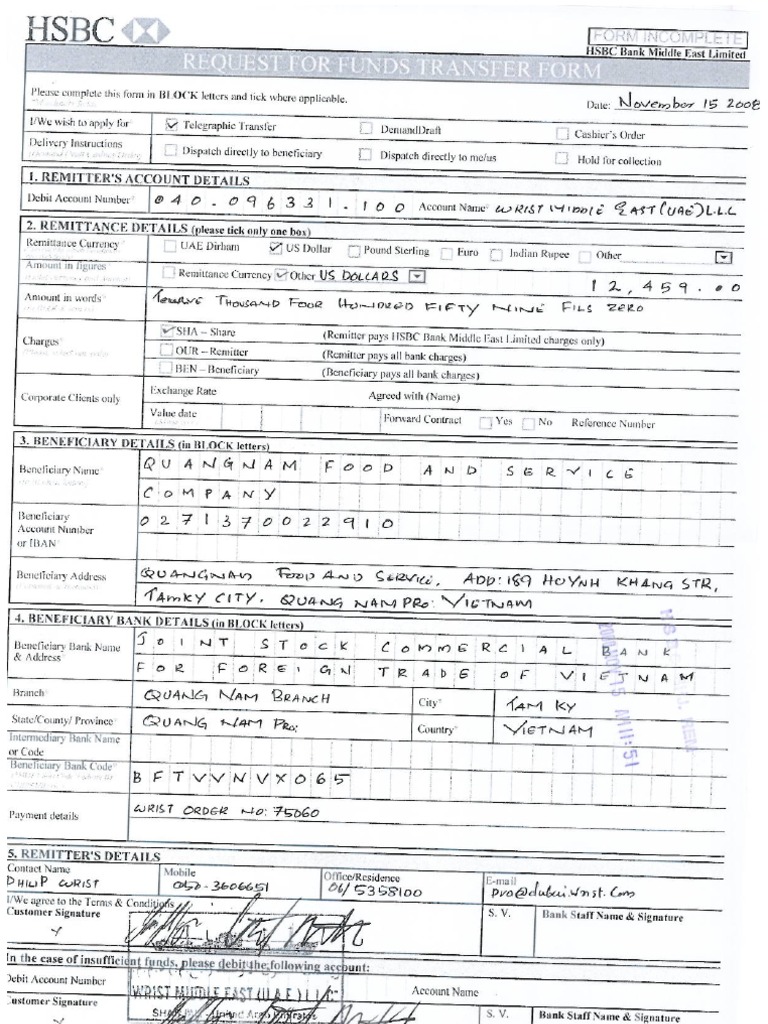 HSBC
FORM INCOMPLETE
HSBC Bank Middle East Limited
REQUEST FOR FUNDS TRANSFER FORM
Please complete this form in BLOCK letters and tick where applicable.
Date: November 15 2008
I/We wish to apply for Telegraphic Transfer DemandDraft Cashier's Order
Delivery Instructions Dispatch directly to beneficiary Dispatch directly to me/us Hold for collection
1. REMITTER'S ACCOUNT DETAILS
Debit Account Number 040.096331.100 Account Name WRIST MIDDLE EAST (UAE) L.L.C
2. REMITTANCE DETAILS (please tick only one box)
Remittance Currency UAE Dirham US Dollar Pound Sterling Euro Indian Rupee Other
Amount in figures Remittance Currency Other US DOLLARS 12,459.00
Amount in words TWELVE THOUSAND FOUR HUNDRED FIFTY NINE FILS ZERO
Charges SHA – Share (Remitter pays HSBC Bank Middle East Limited charges only)
OUR – Remitter (Remitter pays all bank charges)
BEN – Beneficiary (Beneficiary pays all bank charges)
Corporate Clients only Exchange Rate Agreed with (Name)
Value date Forward Contract Yes No Reference Number
3. BENEFICIARY DETAILS (in BLOCK letters)
Beneficiary Name QUANGNAM FOOD AND SERVICE
COMPANY
Beneficiary Account Number or IBAN 0271370022910
Beneficiary Address QUANGNAM FOOD AND SERVICE, ADD: 189 HUYNH KHANG STR,
TAMKY CITY. QUANG NAM PRO: VIETNAM
4. BENEFICIARY BANK DETAILS (in BLOCK letters)
Beneficiary Bank Name & Address JOINT STOCK COMMERCIAL BANK
FOR FOREIGN TRADE OF VIETNAM
Branch QUANG NAM BRANCH City TAM KY
State/County/ Province QUANG NAM PRO: Country VIETNAM
Intermediary Bank Name or Code
Beneficiary Bank Code BFTVVNVX065
Payment details WRIST ORDER NO: 75060
5. REMITTER'S DETAILS
Contact Name Mobile Office/Residence E-mail
PHILIP WRIST 050-3606651 06/5358100 pro@dubai.wrist.com
I/We agree to the Terms & Conditions
Customer Signature S. V. Bank Staff Name & Signature
In the case of insufficient funds, please debit the following account:
Debit Account Number Account Name
WRIST MIDDLE EAST (U.A.E) L.L.C
Customer Signature S. V. Bank Staff Name & Signature